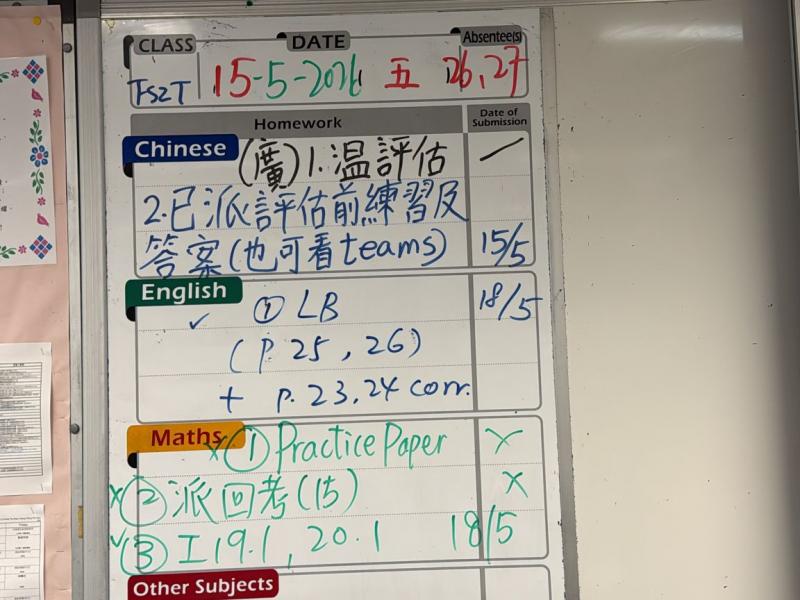 CLASS DATE Absentee(s)
FS2T 15-5-2026 五 26,27
Homework Date of Submission
Chinese (廣) 1.温評估 /
2.已派評估前練習及
答案(也可看teams) 15/5
English ① LB 18/5
✓ (p.25, 26)
+ p.23,24 corr.
Maths x ① Practice Paper x
x ② 派回考(15) x
✓ ③ 工19.1, 20.1 18/5
Other Subjects